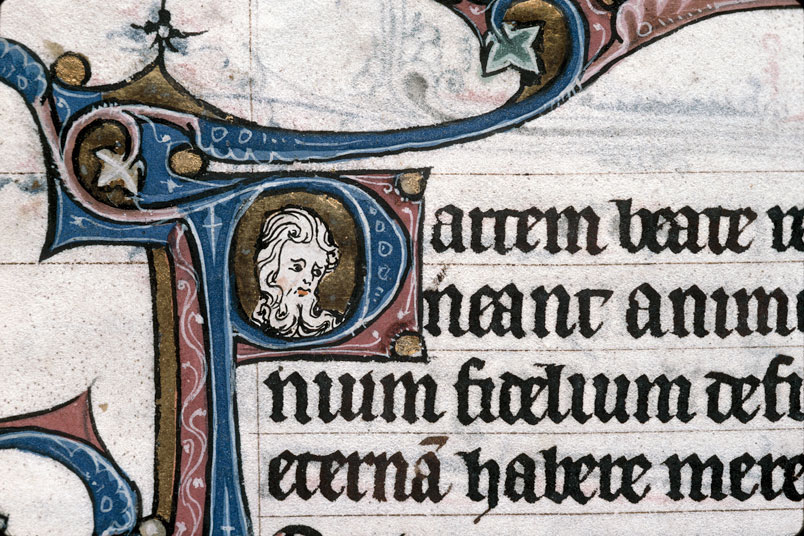 Partem beate re
neant anim
nium fidelium defu
eternā habere mere